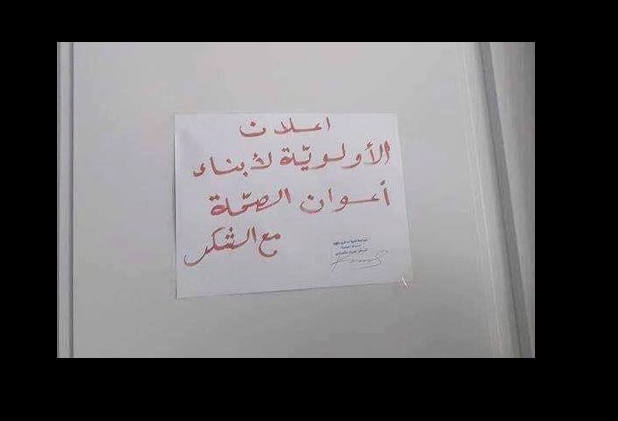 اعلان
الأولويّة لأبناء
أعوان الصحّة
مع الشكر